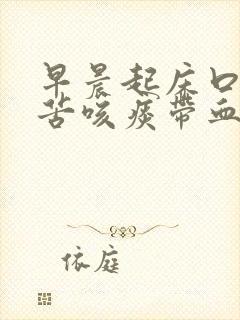 早晨起床口
苦咳痰带血
依庭